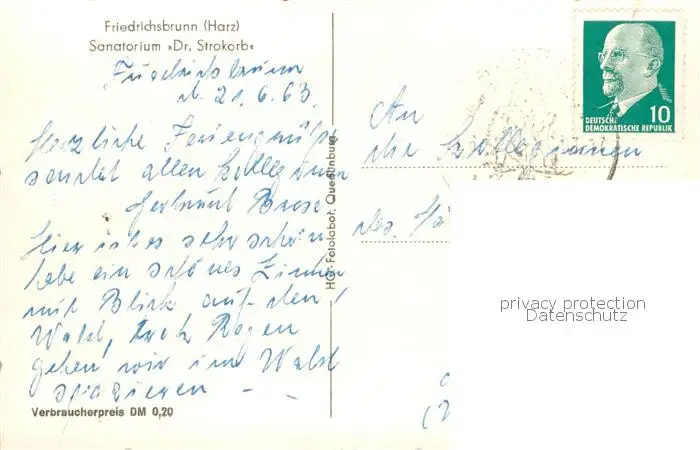 Friedrichsbrunn (Harz)
Sanatorium »Dr. Strokorb«
Friedrichsbrunn
d. 21.6.63.
Herzliche Feriengrüße
sendet allen Kolleginnen
Gertraut
Hier ist es sehr schön
habe ein schönes Zimmer
mit Blick auf den
Wald, trotz Regen
gehen wir im Wald
spazieren – –
Verbraucherpreis DM 0,20
HG-Fotolabor, Quedlinburg
DEUTSCHE 10
DEMOKRATISCHE REPUBLIK
An
die Kolleginnen
des
privacy protection
Datenschutz